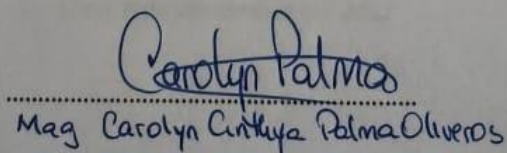 Carolyn Palma
Mag Carolyn Cinthya Palma Oliveros